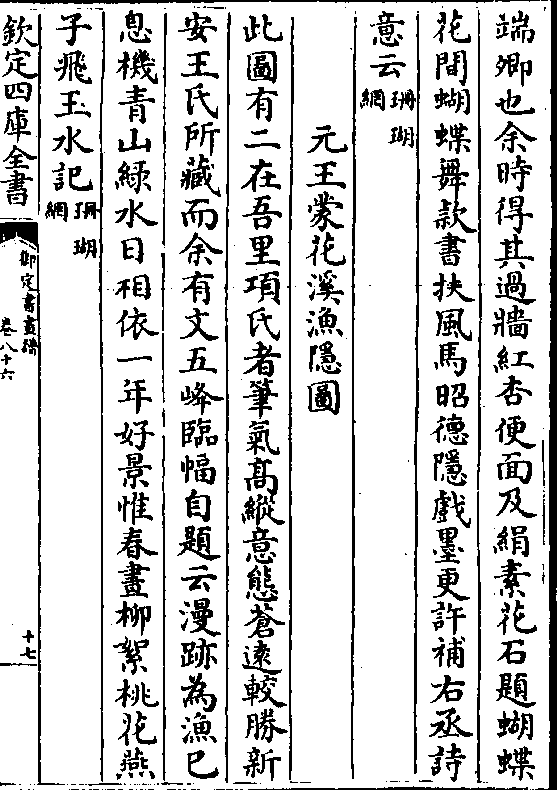 端卿也余時得其過牆紅杏便面及絹素花石題蝴蝶
花間蝴蝶舞款書扶風馬昭德隱戲墨更許補右丞詩
意云珊瑚網
元王蒙花溪漁隱圖
此圖有二在吾里項氏者筆氣高縱意態蒼遠較勝新
安王氏所藏而余有文五峰臨幅自題云漫跡為漁已
息機青山緑水日相依一年好景惟春晝柳絮桃花燕
子飛玉水記珊瑚網
欽定四庫全書
御定書畫譜
卷八十六
十七